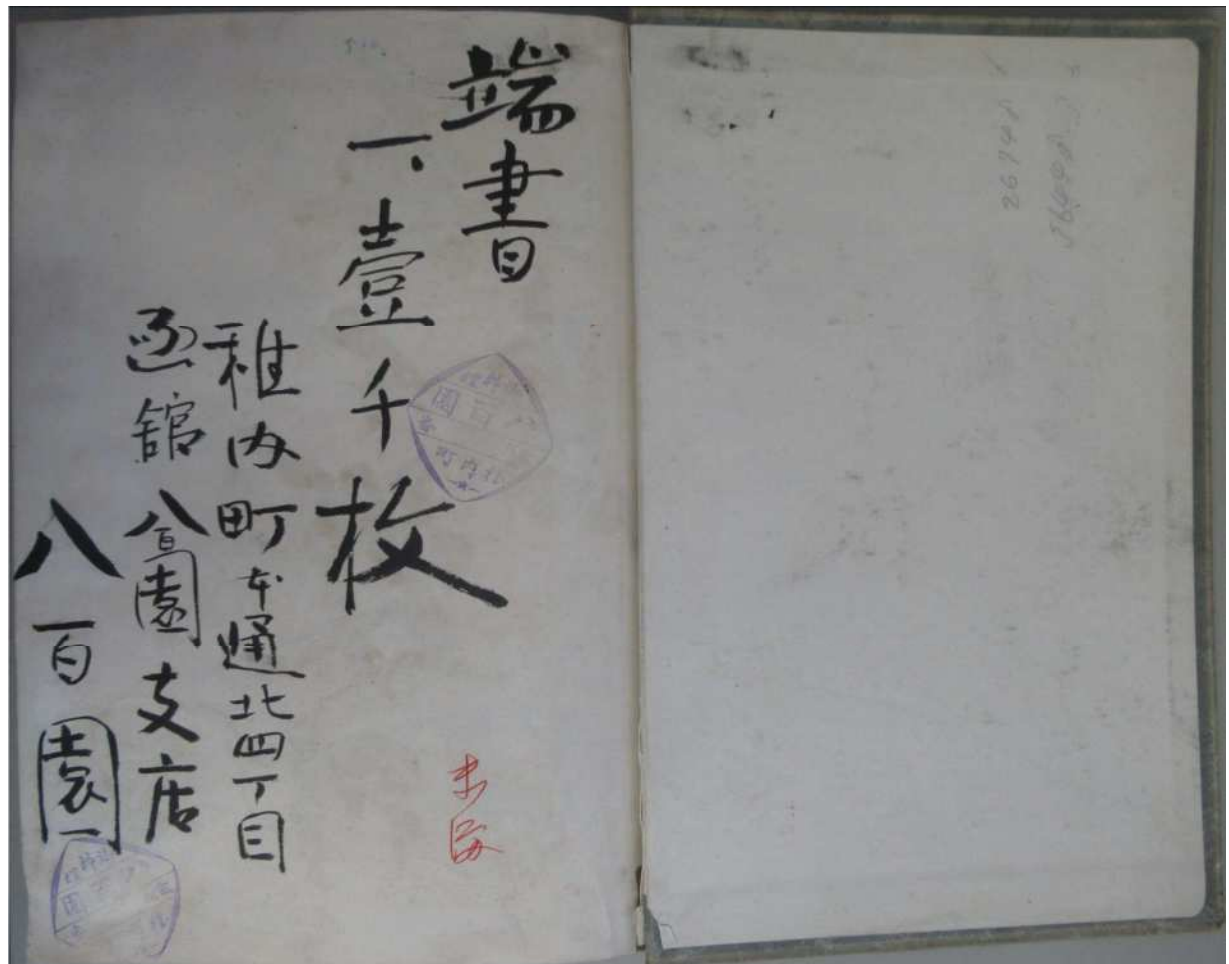 端書
一、壹千枚
稚内町本通北四丁目
函館八百園支店
八百園
26794